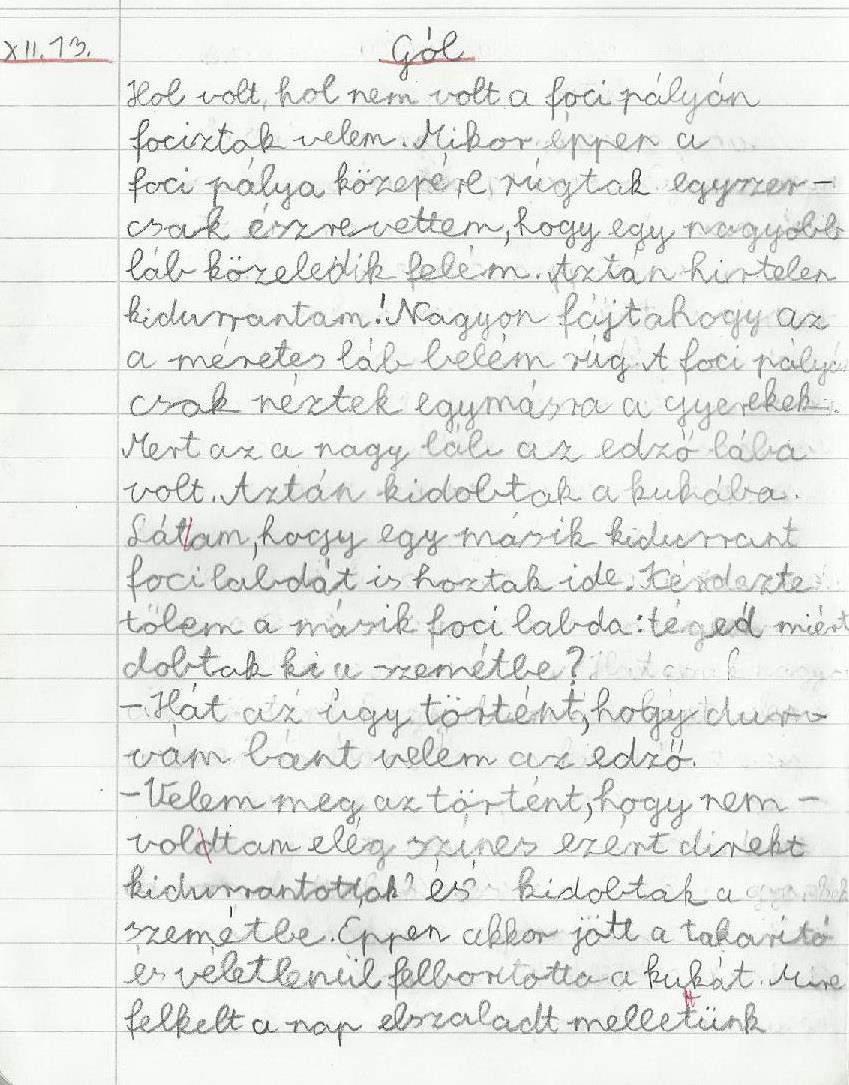 XII. 13.
Gól
Hol volt, hol nem volt a foci pályán
fociztak velem. Mikor éppen a
foci pálya közepére rúgtak egyszer-
csak észrevettem, hogy egy nagyobb
láb közeledik felém. Aztán hirtelen
kidurrantam! Nagyon fájt ahogy az
a méretes láb belém rúg. A foci pályá
csak néztek egymásra a gyerekek.
Mert az a nagy láb az edző lába
volt. Aztán kidobtak a kukába.
Láttam, hogy egy másik kidurrant
foci labdát is hoztak ide. Kérdezte
tőlem a másik foci labda: téged miért
dobtak ki a szemétbe?
- Hát az úgy történt, hogy dur-
vám bánt velem az edző.
- Velem meg az történt, hogy nem -
voltam elég színes ezért direkt
kidurrantottak és kidobtak a
szemétbe. Éppen akkor jött a takarító
és véletlenül felborította a kukát. Mire
felkelt a nap elszaladt mellettünk